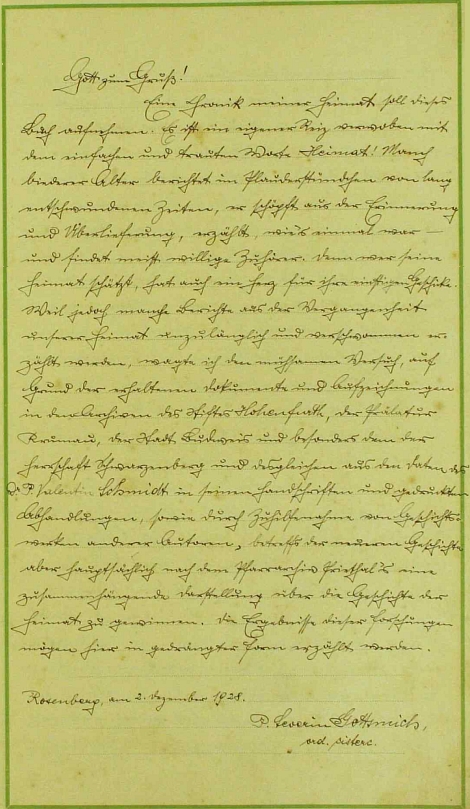 Gott zum Gruß!
Eine Chronik meiner Heimat soll dieses
Buch aufnehmen. Es ist ein eigener Reiz verwoben mit
dem einfachen und trauten Worte Heimat! Manch
biederer Alter berichtet im Plauderstündchen von lang
entschwundenen Zeiten, er schöpft aus der Erinnerung
und Überlieferung, erzählt, wie's einmal war —
und findet meist willige Zuhörer. Denn wer seine
Heimat schätzt, hat auch ein Herz für ihre einstigen Geschicke.
Weil jedoch manche Berichte aus der Vergangenheit
unserer Heimat unzulänglich und verschwommen er-
zählt werden, wagte ich den mühsamen Versuch, auf
Grund der erhaltenen Dokumente und Aufzeichnungen
in den Archiven des Stiftes Hohenfurth, der Prälatur
Krumau, der Stadt Budweis und besonders dem der
Herrschaft Schwarzenberg und desgleichen aus den Daten des
Dr. P. Valentin Schmidt in seinen Handschriften und gedruckten
Abhandlungen, sowie durch Zuhilfenahme von Geschichts-
werken anderer Autoren, betreffs der neueren Geschichte
aber hauptsächlich nach dem Pfarrarchiv Priethal's eine
zusammenhängende Darstellung über die Geschichte der
Heimat zu gewinnen. Die Ergebnisse dieser Forschungen
mögen hier in gedrängter Form erzählt werden.
Rosenberg, am 2. Dezember 1928.
P. Severin Gottsmich,
ord. cisterc.